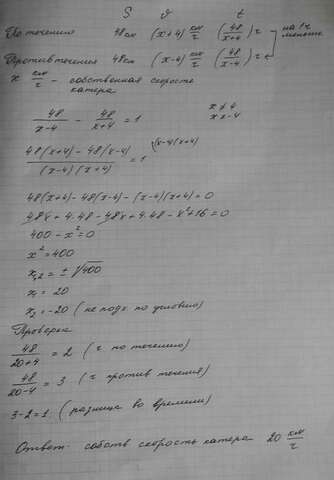 S v t
По течению 48км (x+4) км/ч (48/(x+4)) ч на 1ч
Против течения 48км (x-4) км/ч (48/(x-4)) ч меньше
x км/ч - собственная скорость
катера
48/(x-4) - 48/(x+4) = 1 x≠4
x≠-4
(48(x+4)-48(x-4))/((x-4)(x+4)) = 1 \(x-4)(x+4)
48(x+4)-48(x-4)-(x-4)(x+4)=0
48x+4·48-48x+4·48-x²+16=0
400-x²=0
x²=400
x₁,₂=±√400
x₁=20
x₂=-20 (не подх по условию)
Проверка
48/(20+4) = 2 (ч по течению)
48/(20-4) = 3 (ч против течения)
3-2=1 (разница во времени)
Ответ: собств скорость катера 20 км/ч